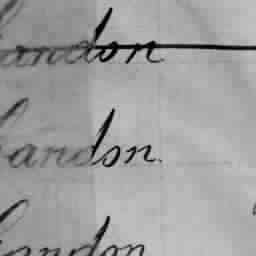 andon
andon
andon